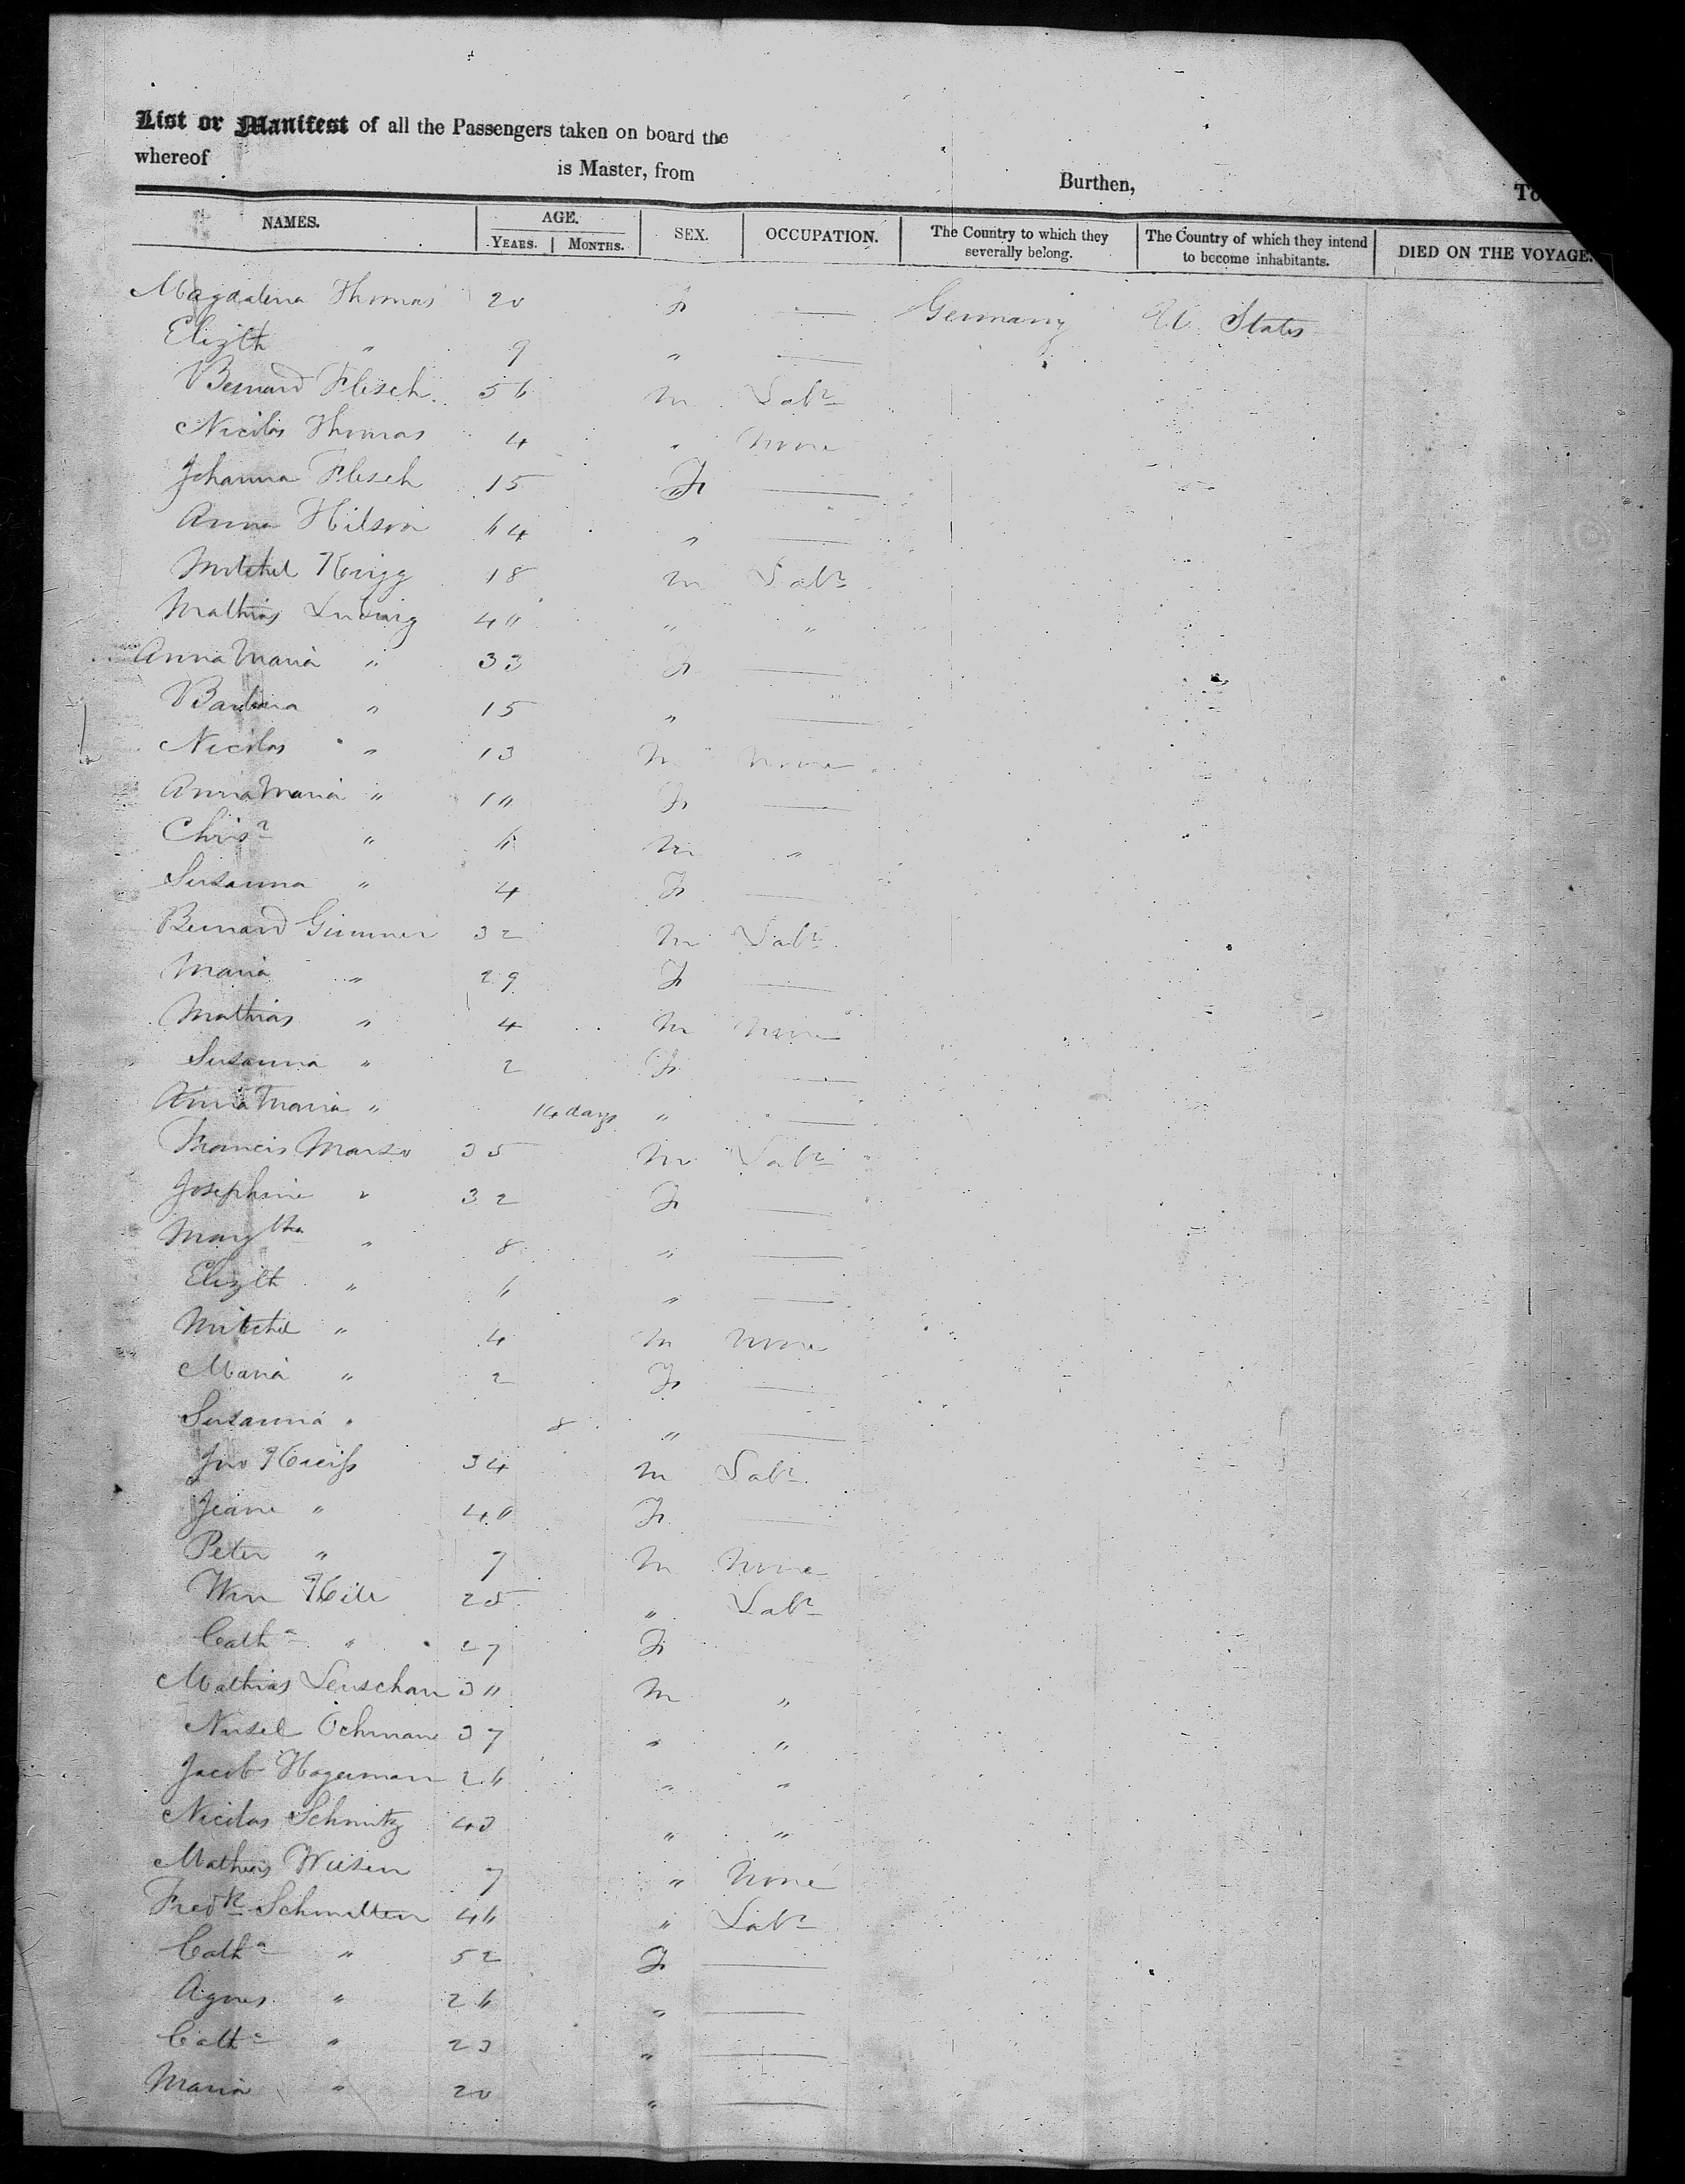 List or Manifest of all the Passengers taken on board the
whereof is Master, from Burthen, To
NAMES. AGE. SEX. OCCUPATION. The Country to which they severally belong. The Country of which they intend to become inhabitants. DIED ON THE VOYAGE.
YEARS. MONTHS.
Magdalena Thomas 20 F — Germany U. States
Elizth " 9 " —
Bernard Flesch 56 M Labr
Nicolas Thomas 4 " None
Johanna Flesch 15 F —
Anna Hilson 64 " —
Mitchel 18 M Labr
Mathias Ludwig 40 " "
Anna Maria " 33 F —
Barbara " 15 " —
Nicolas " 13 M None
Anna Maria " 10 F —
Chrisr " 6 M "
Susanna " 4 F —
Bernard Gimmer 32 M Labr
Maria " 29 F —
Mathias " 4 M None
Susanna " 2 F —
Anna Maria " 14 days " —
Francis Marso 35 M Labr
Josephine " 32 F —
Margtha " 8 " —
Elizth " 6 " —
Mitchel " 4 M None
Maria " 2 F —
Susanna " 8 " —
Jno 34 M Labr
Jeane " 40 F —
Peter " 7 M None
Wm 25 " Labr
Catha " 27 F
Mathias Leuschan 30 M "
Ochmane 37 " "
Jacob Hagerman 26 " "
Nicolas Schmitz 43 " "
Mathias 7 " None
Fredk Schmitten 46 " Labr
Catha " 52 F —
Agnes " 26 " —
Catha " 23 " —
Maria " 20 " —